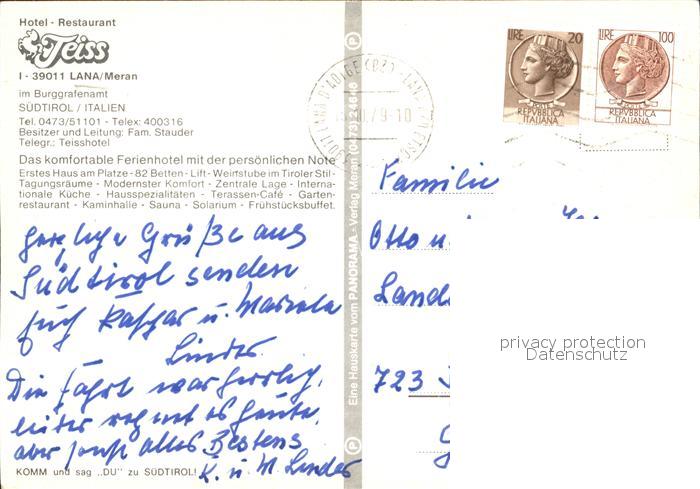 Hotel - Restaurant
Teiss
I - 39011 LANA/Meran
im Burggrafenamt
SÜDTIROL / ITALIEN
Tel. 0473/51101 - Telex: 400316
Besitzer und Leitung: Fam. Stauder
Telegr.: Teisshotel
Das komfortable Ferienhotel mit der persönlichen Note
Erstes Haus am Platze - 82 Betten - Lift - Weinstube im Tiroler Stil -
Tagungsräume - Modernster Komfort - Zentrale Lage - Interna-
tionale Küche - Hausspezialitäten - Terassen-Café - Garten-
restaurant - Kaminhalle - Sauna - Solarium - Frühstücksbuffet.
herzliche Grüße aus
Südtirol senden
Euch Kaspar u. Mariela
Linder.
Die Fahrt war herrlich,
leider regnet es heute,
aber sonst alles Bestens
K. u. M. Linder
KOMM und sag „DU" zu SÜDTIROL!
Eine Hauskarte vom PANORAMA - Verlag Meran (0473) 24646
LIRE 20
REPVBBLICA
ITALIANA
LIRE 100
REPVBBLICA
ITALIANA
Familie
Otto u
Lande
723
privacy protection
Datenschutz